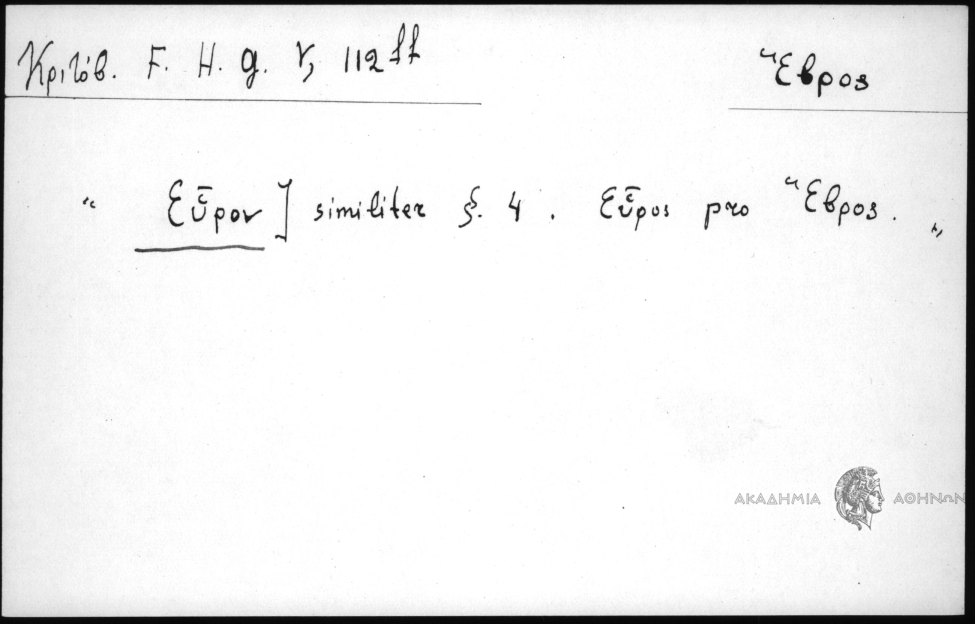 Κριτόβ. F. H. g. V, 112 ff
Ἕβρος
“ Εὖρον ] similiter §. 4 . Εὖρος pro Ἕβρος. „
ΑΚΑΔΗΜΙΑ ΑΘΗΝΩΝ